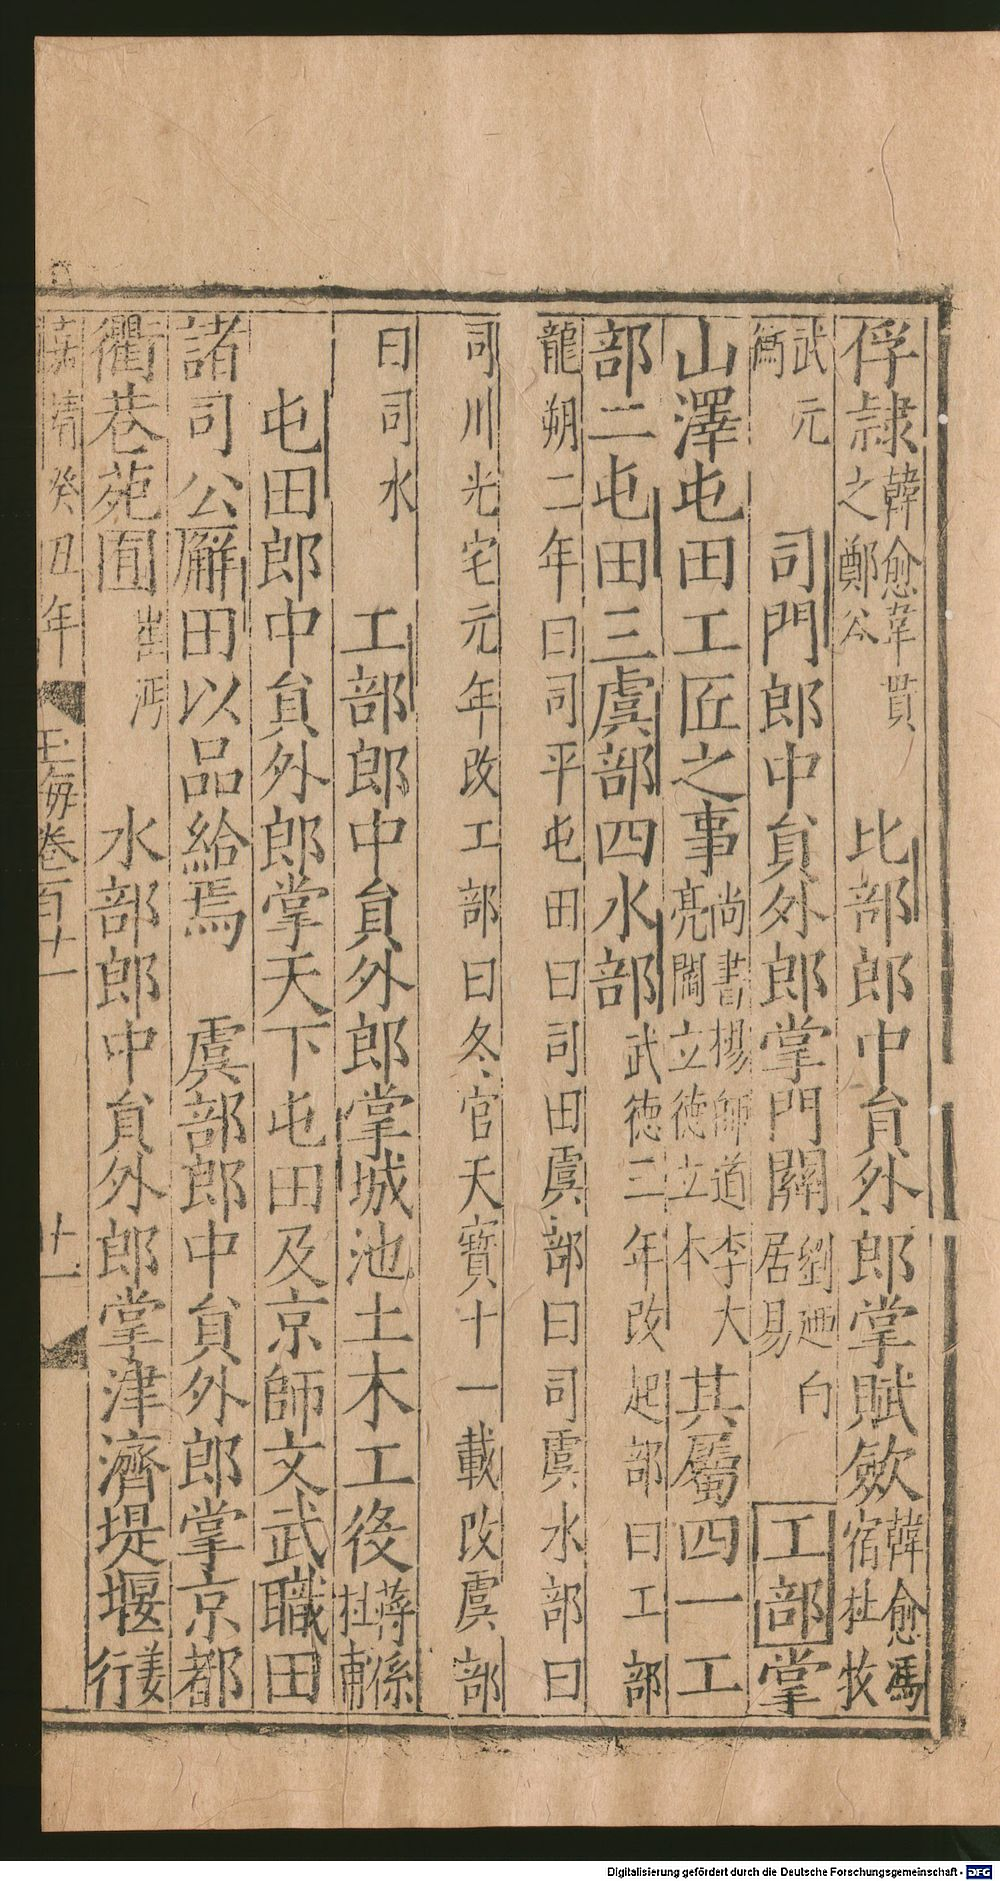 俘隷韓愈韋貫之鄭公 比部郎中貟外郎掌賦斂韓愈馮宿杜牧
武元衡 司門郎中貟外郎掌門關劉迺白居易 工部掌
山澤屯田工匠之事尚書楊師道李大亮閻立德立本 其屬四一工
部二屯田三虞部四水部武德三年改起部曰工部
龍朔二年曰司平屯田曰司田虞部曰司虞水部曰
司川光宅元年改工部曰冬官天寳十一載改虞部
曰司水 工部郎中貟外郎掌城池土木工役蔣係杜兼
屯田郎中貟外郎掌天下屯田及京師文武職田
諸司公廨田以品給焉 虞部郎中貟外郎掌京都
衢巷苑囿崔沔 水部郎中貟外郎掌津濟堤堰姜行
嘉清癸丑年 玉海卷百十一 廾一
Digitalisierung gefördert durch die Deutsche Forschungsgemeinschaft - DFG